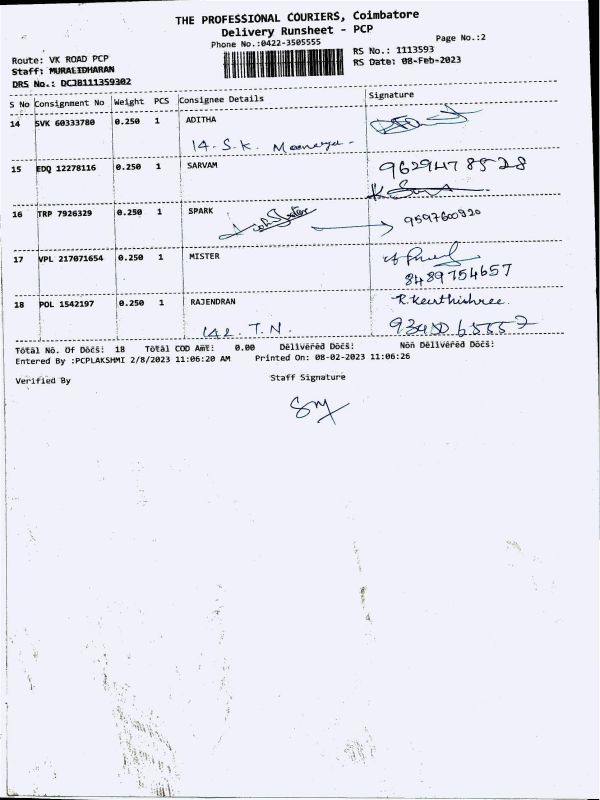 THE PROFESSIONAL COURIERS, Coimbatore
Delivery Runsheet - PCP
Phone No.:0422-3505555
Page No.:2
Route: VK ROAD PCP
RS No.: 1113593
Staff: MURALIDHARAN
RS Date: 08-Feb-2023
DRS No.: DCJB111359302
S No Consignment No Weight PCS Consignee Details Signature
14 SVK 60333780 0.250 1 ADITHA
14. S.K.
15 EDQ 12278116 0.250 1 SARVAM 9629478528
16 TRP 7926329 0.250 1 SPARK 9597600920
17 VPL 217071654 0.250 1 MISTER
8489754657
18 POL 1542197 0.250 1 RAJENDRAN R.Keerthishree.
142. T.N.
Total No. Of Docs: 18 Total COD Amt: 0.00 Delivered Docs: Non Delivered Docs:
Entered By :PCPLAKSHMI 2/8/2023 11:06:20 AM Printed On: 08-02-2023 11:06:26
Verified By Staff Signature